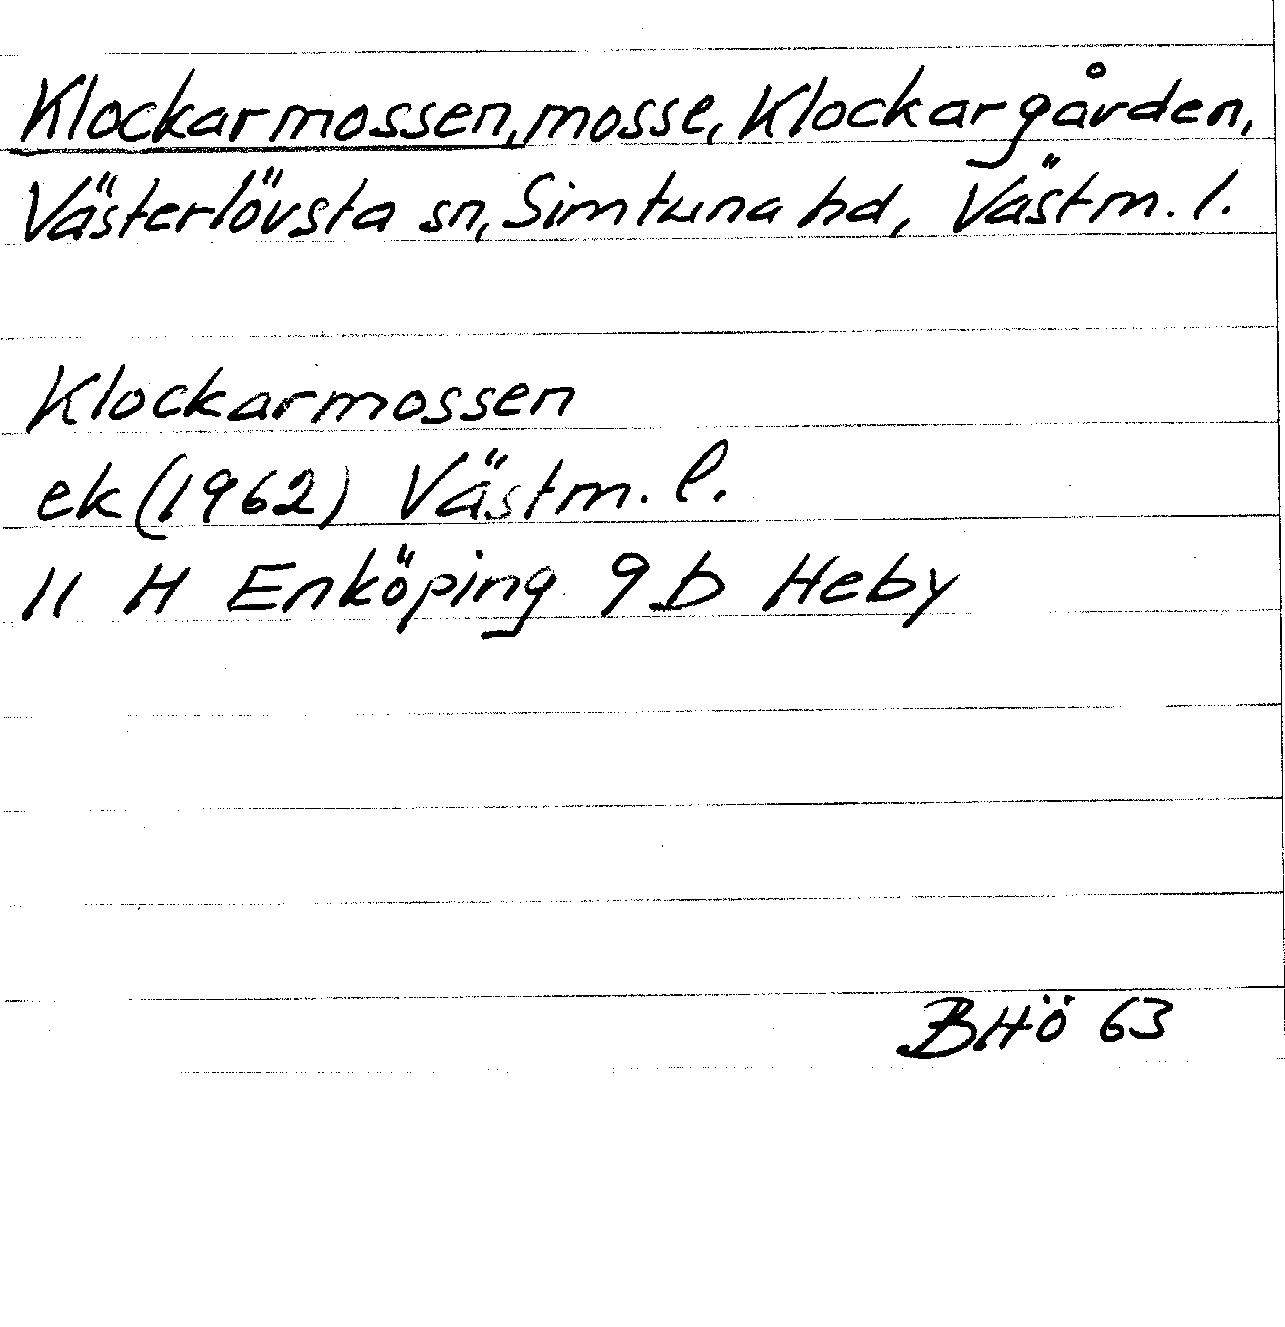 Klockarmossen, mosse, Klockargården,
Västerlövsta sn, Simtuna hd, Västm. l.
Klockarmossen
ek (1962) Västm. l.
11 H Enköping 9 b Heby
BHö 63